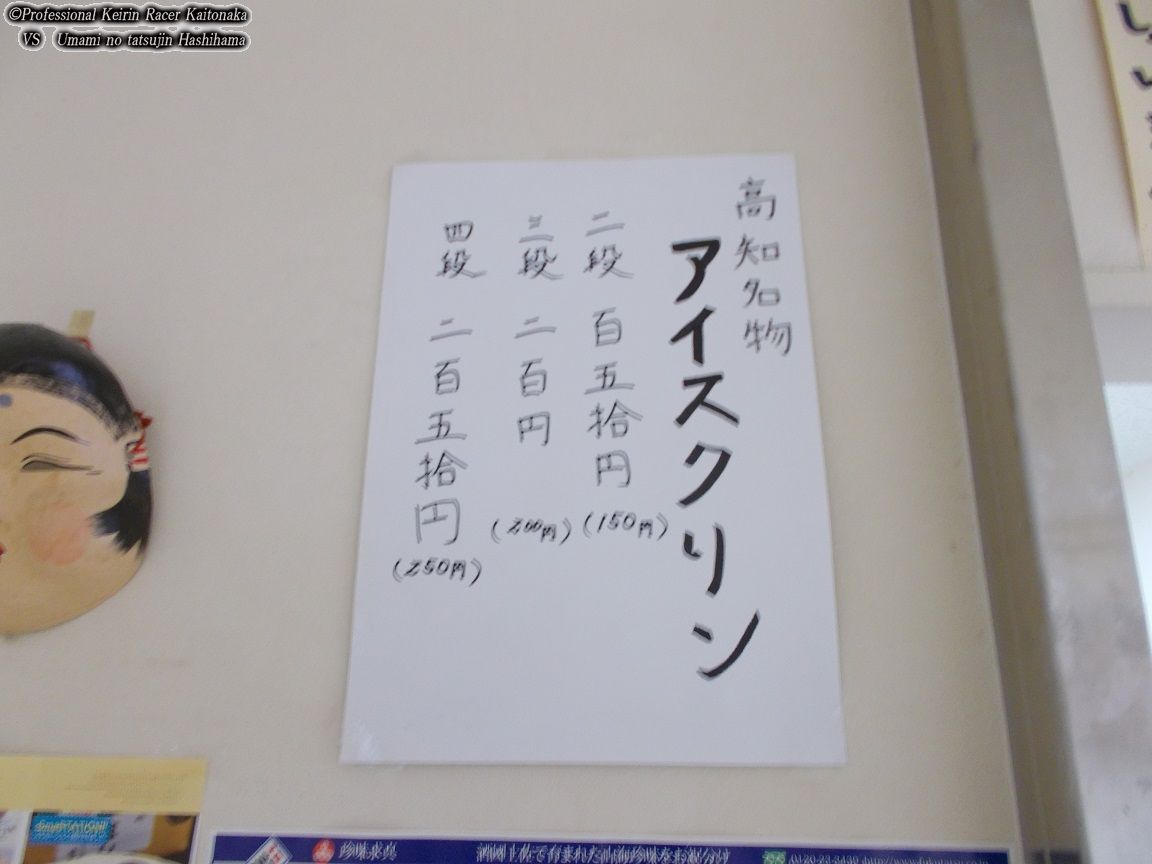 ©Professional Keirin Racer Kaitonaka
VS Umami no tatsujin Hashihama
高知名物
アイスクリン
二段 百五拾円 (150円)
三段 二百円 (200円)
四段 二百五拾円 (250円)
珍味求真 酒國土佐で育まれた山海珍味をお裾分け